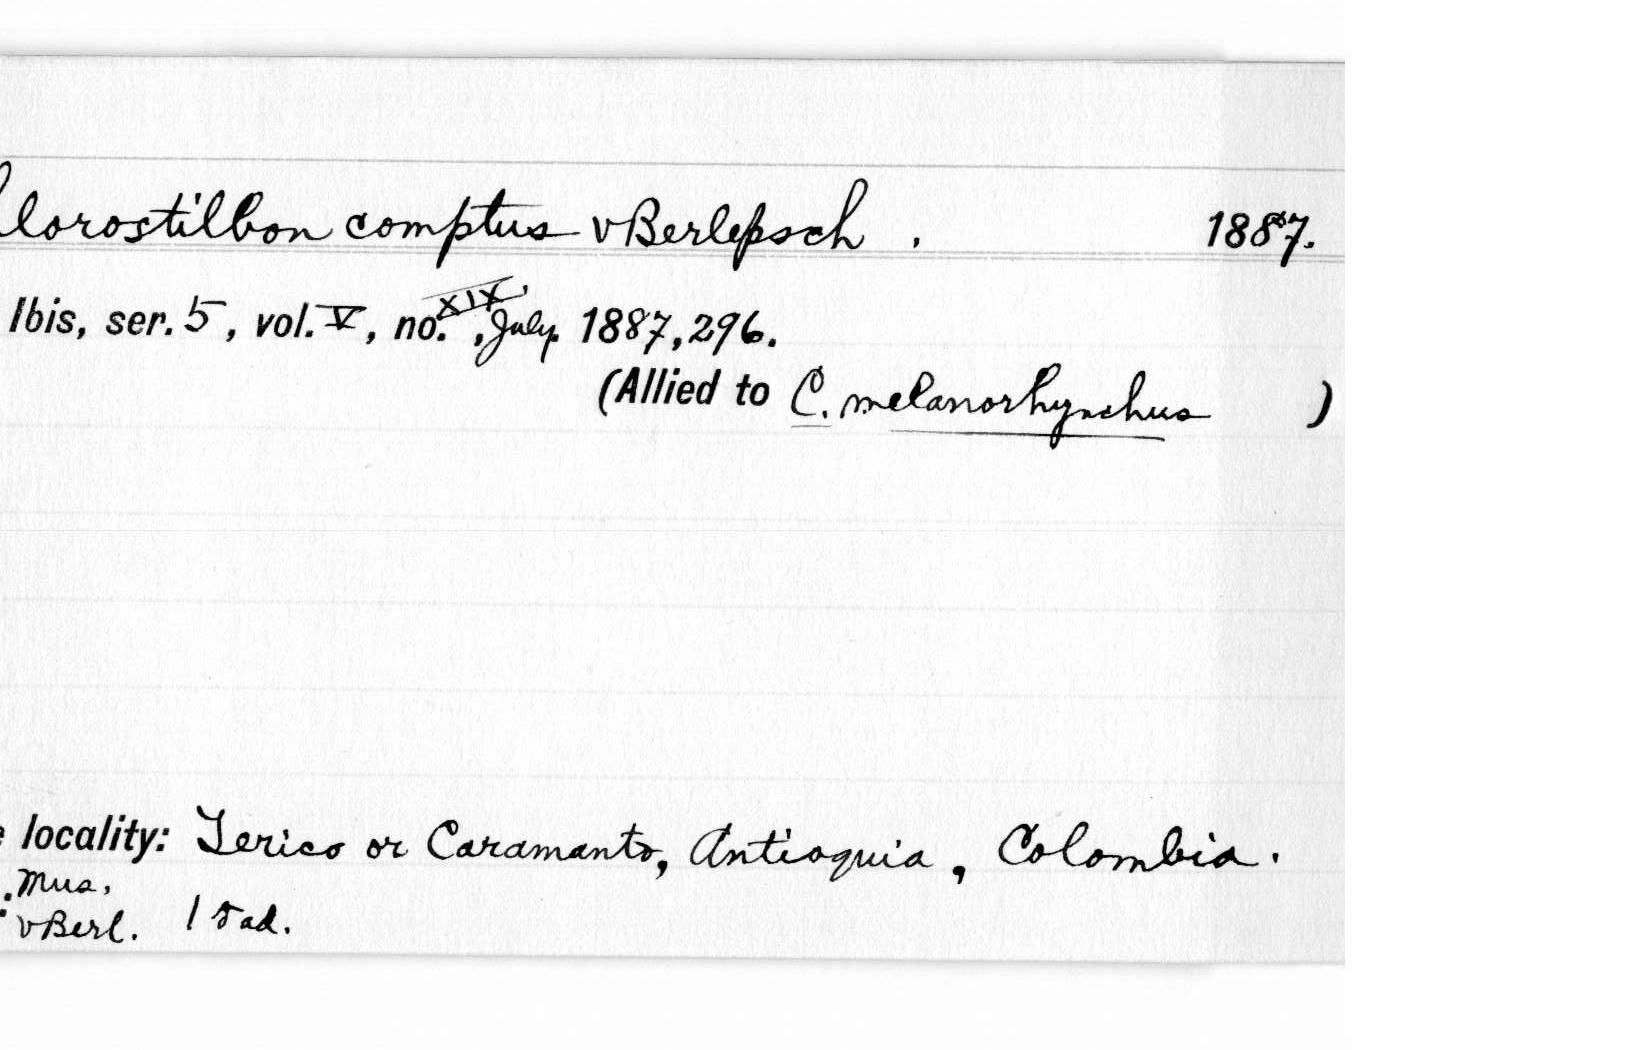 lorostilbon comptus vBerlepsch . 1887.
Ibis, ser. 5, vol. V, no. XIX, July 1887, 296.
(Allied to C. melanorhynchus )
locality: Jerico or Caramanto, Antioquia, Colombia.
Mus.
vBerl. 1 ad.